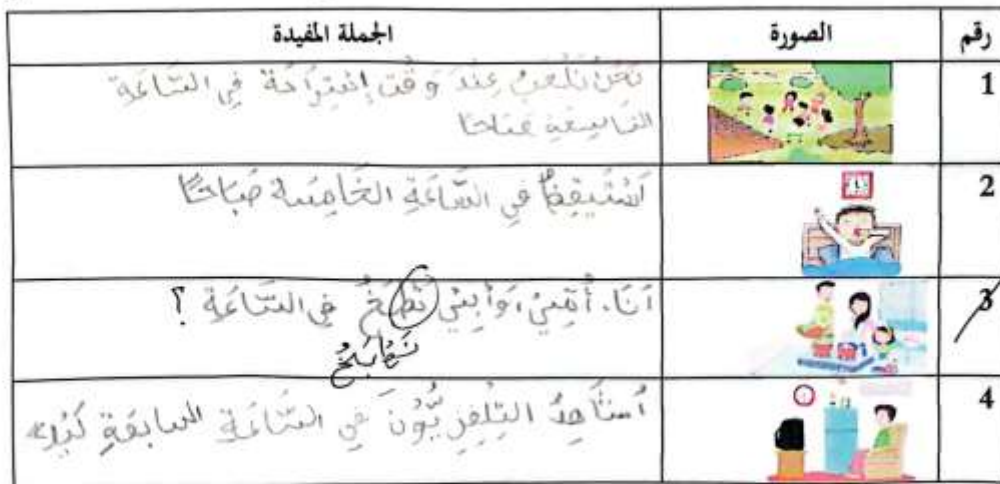 رقم الصورة الجملة المفيدة
1 نَحْنُ نَلْعَبُ عِنْدَ وَقْت إِسْتِرَاحَة فِي السَّاعَةِ
التَاسِعَةِ صَبَاحًا
2 أَسْتَيقِظُ فِي السَّاعَةِ الخَامِسَة صَبَاحًا
3 أَنَا، أُمِّيْ، وَأَبِيْ نَطْبَخُ فِي السَّاعَةِ ؟
نَطْبَخُ
4 أُشَاهِدُ التِلِفِزِيُّونَ فِي السَّاعَةِ السابعَةِ